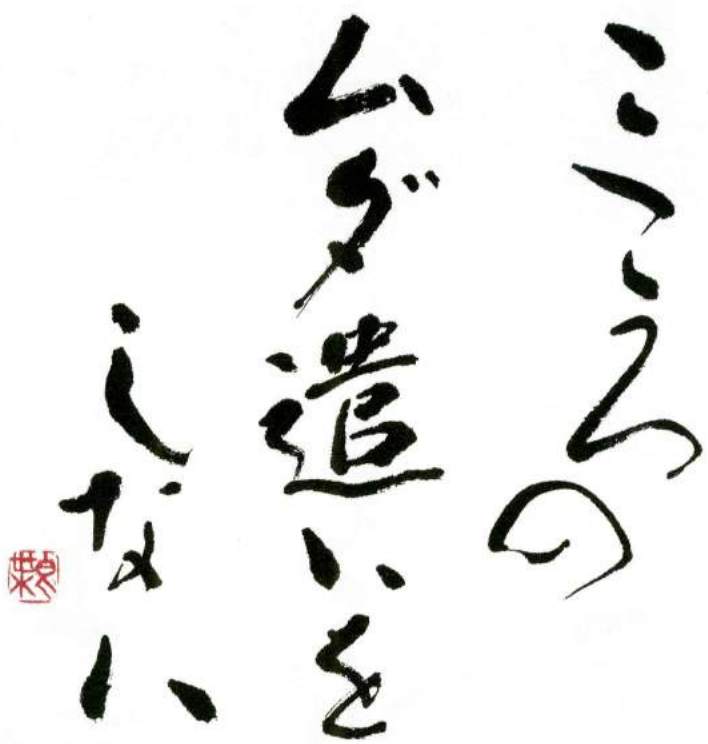 こころの
ムダ遣いを
しない